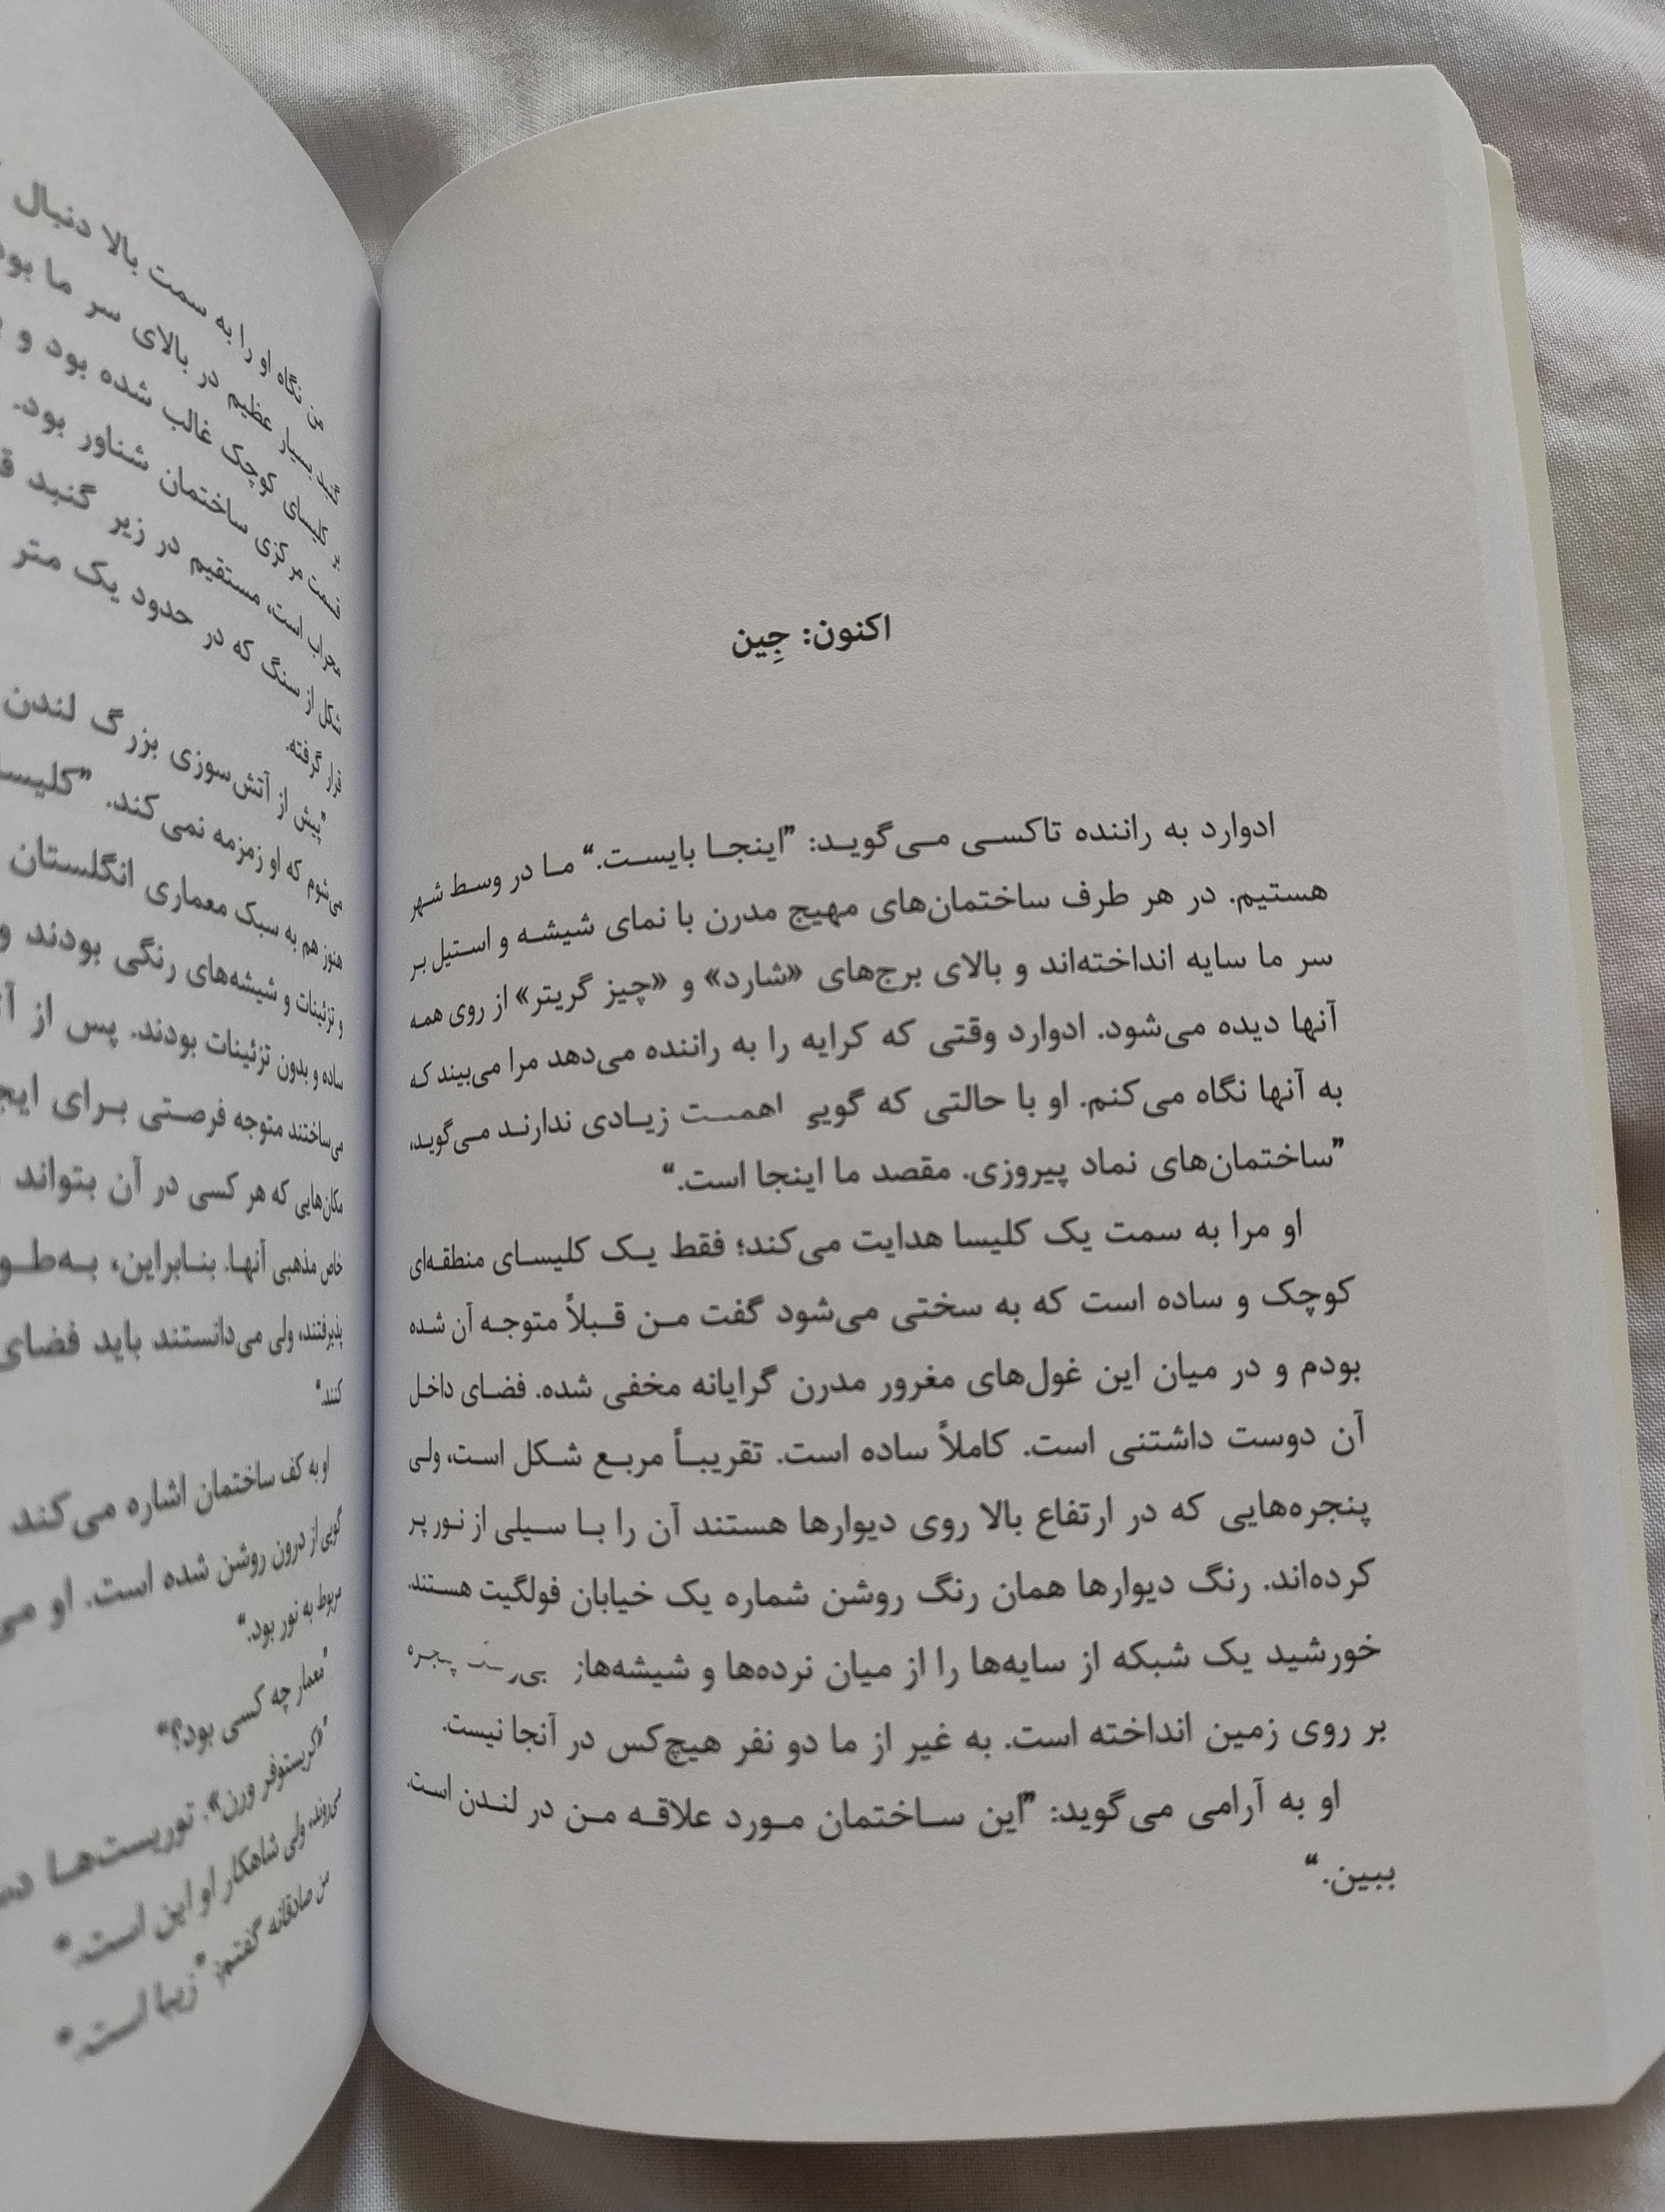 اکنون: جِین
ادوارد به راننده تاکسی می‌گوید: "اینجا بایست." ما در وسط شهر
هستیم. در هر طرف ساختمان‌های مهیج مدرن با نمای شیشه و استیل بر
سر ما سایه انداخته‌اند و بالای برج‌های «شارد» و «چیز گریتر» از روی همه
آنها دیده می‌شود. ادوارد وقتی که کرایه را به راننده می‌دهد مرا می‌بیند که
به آنها نگاه می‌کنم. او با حالتی که گویی اهمیت زیادی ندارند می‌گوید،
"ساختمان‌های نماد پیروزی. مقصد ما اینجا است."
او مرا به سمت یک کلیسا هدایت می‌کند؛ فقط یک کلیسای منطقه‌ای
کوچک و ساده است که به سختی می‌شود گفت من قبلاً متوجه آن شده
بودم و در میان این غول‌های مغرور مدرن گرایانه مخفی شده. فضای داخل
آن دوست داشتنی است. کاملاً ساده است. تقریباً مربع شکل است، ولی
پنجره‌هایی که در ارتفاع بالا روی دیوارها هستند آن را با سیلی از نور پر
کرده‌اند. رنگ دیوارها همان رنگ روشن شماره یک خیابان فولگیت هستند.
خورشید یک شبکه از سایه‌ها را از میان نرده‌ها و شیشه‌های پنجره
بر روی زمین انداخته است. به غیر از ما دو نفر هیچ‌کس در آنجا نیست.
او به آرامی می‌گوید: "این ساختمان مورد علاقه من در لندن است.
ببین."
من نگاه او را به سمت بالا دنبال
گنبد بسیار عظیم در بالای سر ما بود
بر کلیسای کوچک غالب شده بود و
قسمت مرکزی ساختمان شناور بود.
محراب است، مستقیم در زیر گنبد
شکل از سنگ که در حدود یک متر
قرار گرفته.
"پیش از آتش‌سوزی بزرگ لندن
می‌شوم که او زمزمه نمی‌کند. "کلیسا
هنوز هم به سبک معماری انگلستان
و تزئینات و شیشه‌های رنگی بودند و
ساده و بدون تزئینات بودند. پس از
می‌ساختند متوجه فرصتی برای
مکان‌هایی که هر کسی در آن بتواند
خاص مذهبی آنها. بنابراین، به‌طو
پذیرفتند، ولی می‌دانستند باید فضای
کنند."
او به کف ساختمان اشاره می‌کند
گویی از درون روشن شده است. او
مربوط به نور بود."
"معمار چه کسی بود؟"
"«کریستوفر ورن». توریست‌ها
می‌روند، ولی شاهکار او این است."
من صادقانه گفتم: "زیبا است."